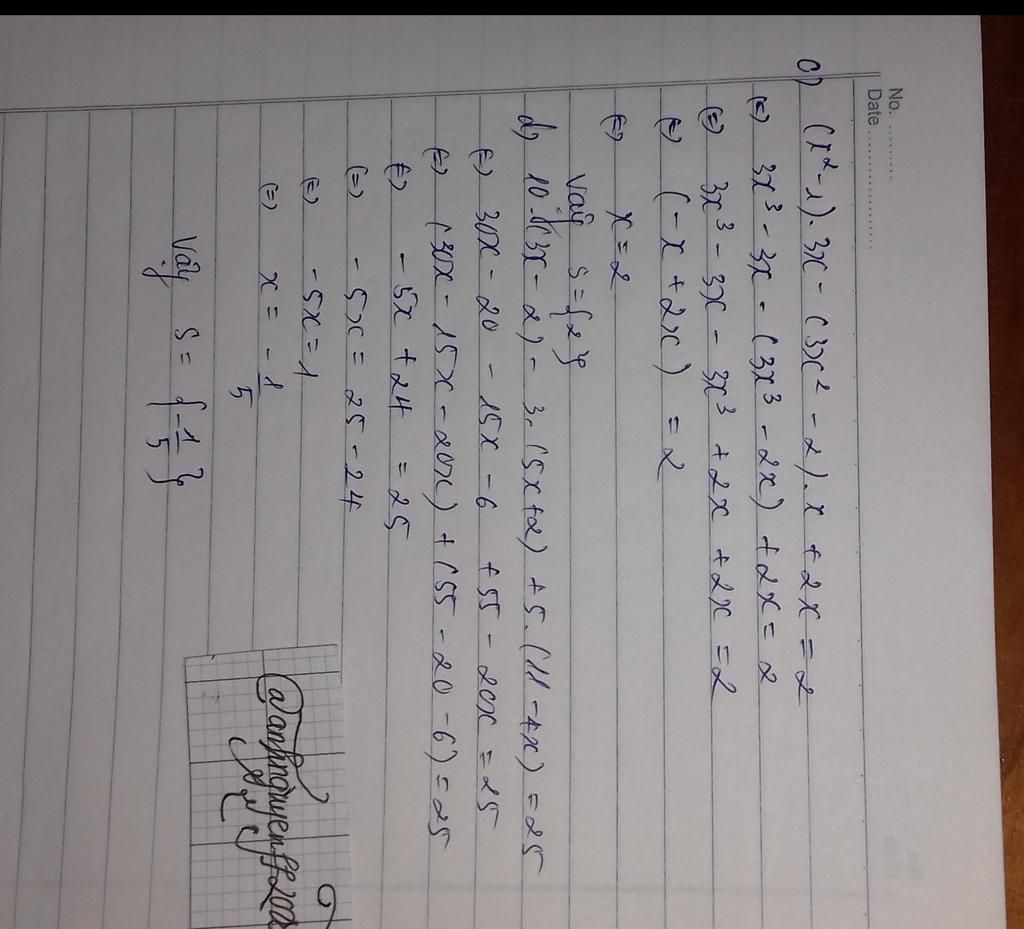 No. ..........
Date ......................
c) (x²-1).3x - (3x² - 2).x + 2x = 2
(=) 3x³ - 3x - (3x³ - 2x) + 2x = 2
(=) 3x³ - 3x - 3x³ + 2x + 2x = 2
(=) (-x + 2x) = 2
(=) x = 2
Vậy S = {2}
d) 10.(3x - 2) - 3.(5x+2) + 5.(11 - 4x) = 25
(=) 30x - 20 - 15x - 6 + 55 - 20x = 25
(=) (30x - 15x - 20x) + (55 - 20 - 6) = 25
(=) -5x + 24 = 25
(=) -5x = 25 - 24
(=) -5x = 1
(=) x = -1/5
Vậy S = {-1/5}